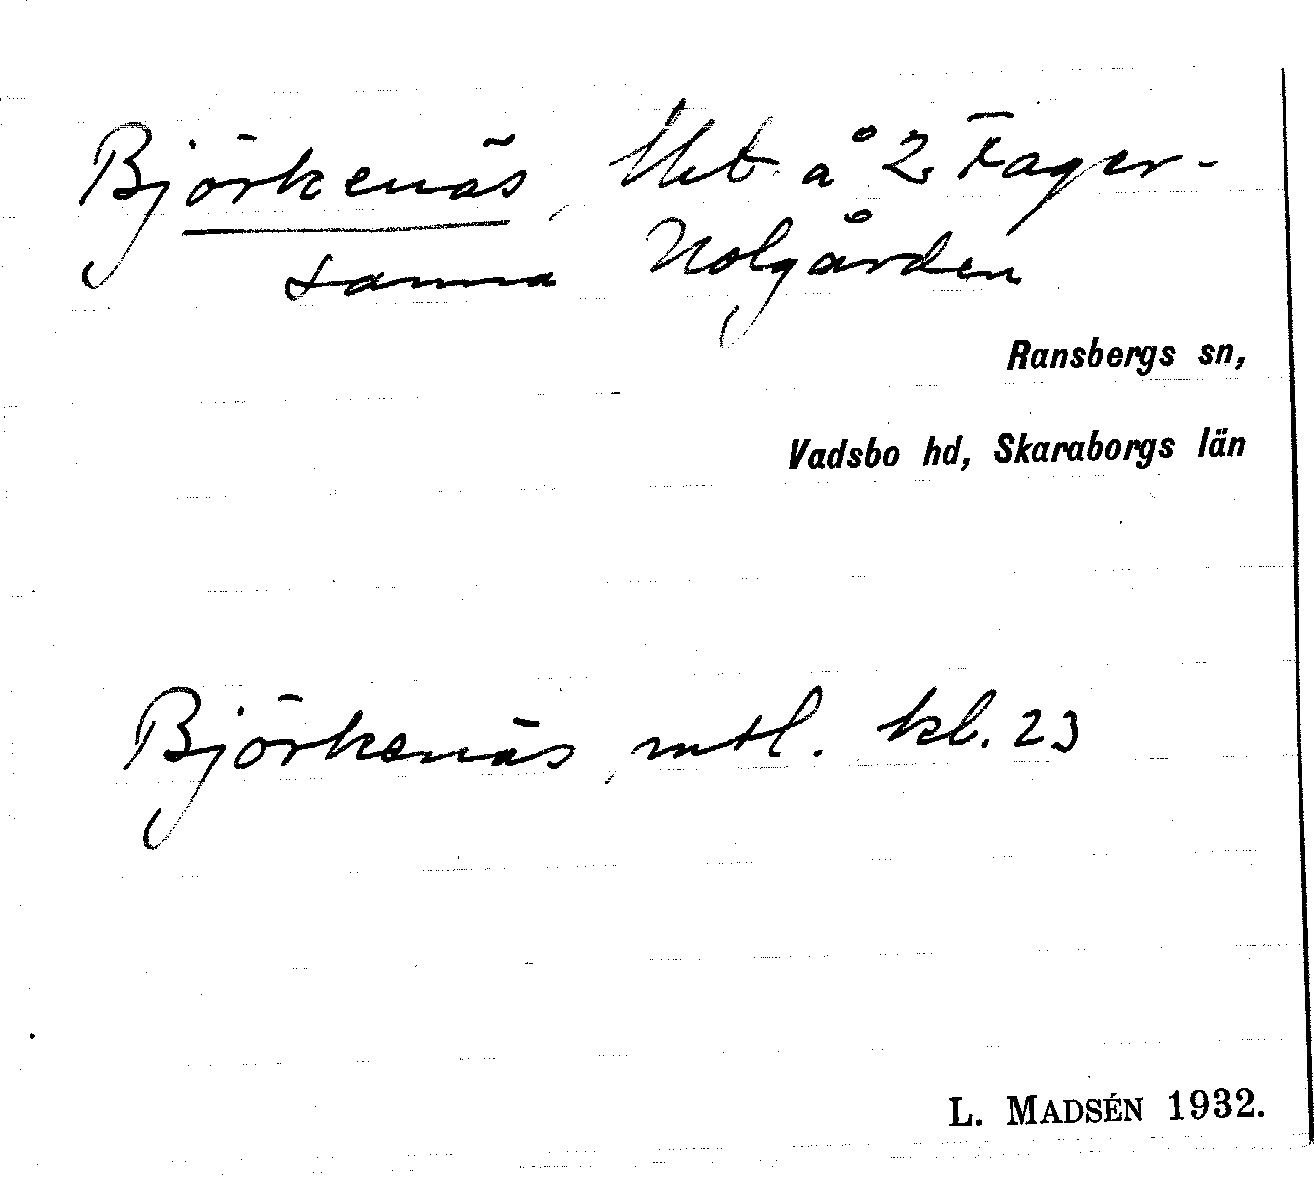 Björkenäs, Utb. å 2 Fager-
sanna Nolgården
Ransbergs sn,
Vadsbo hd, Skaraborgs län
Björkenäs, mtl. kl. 23
L. MADSÉN 1932.